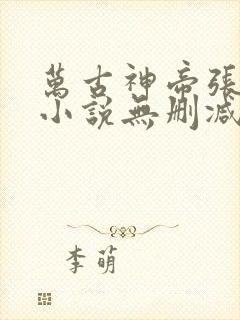 萬古神帝張
小說無刪減
李萌